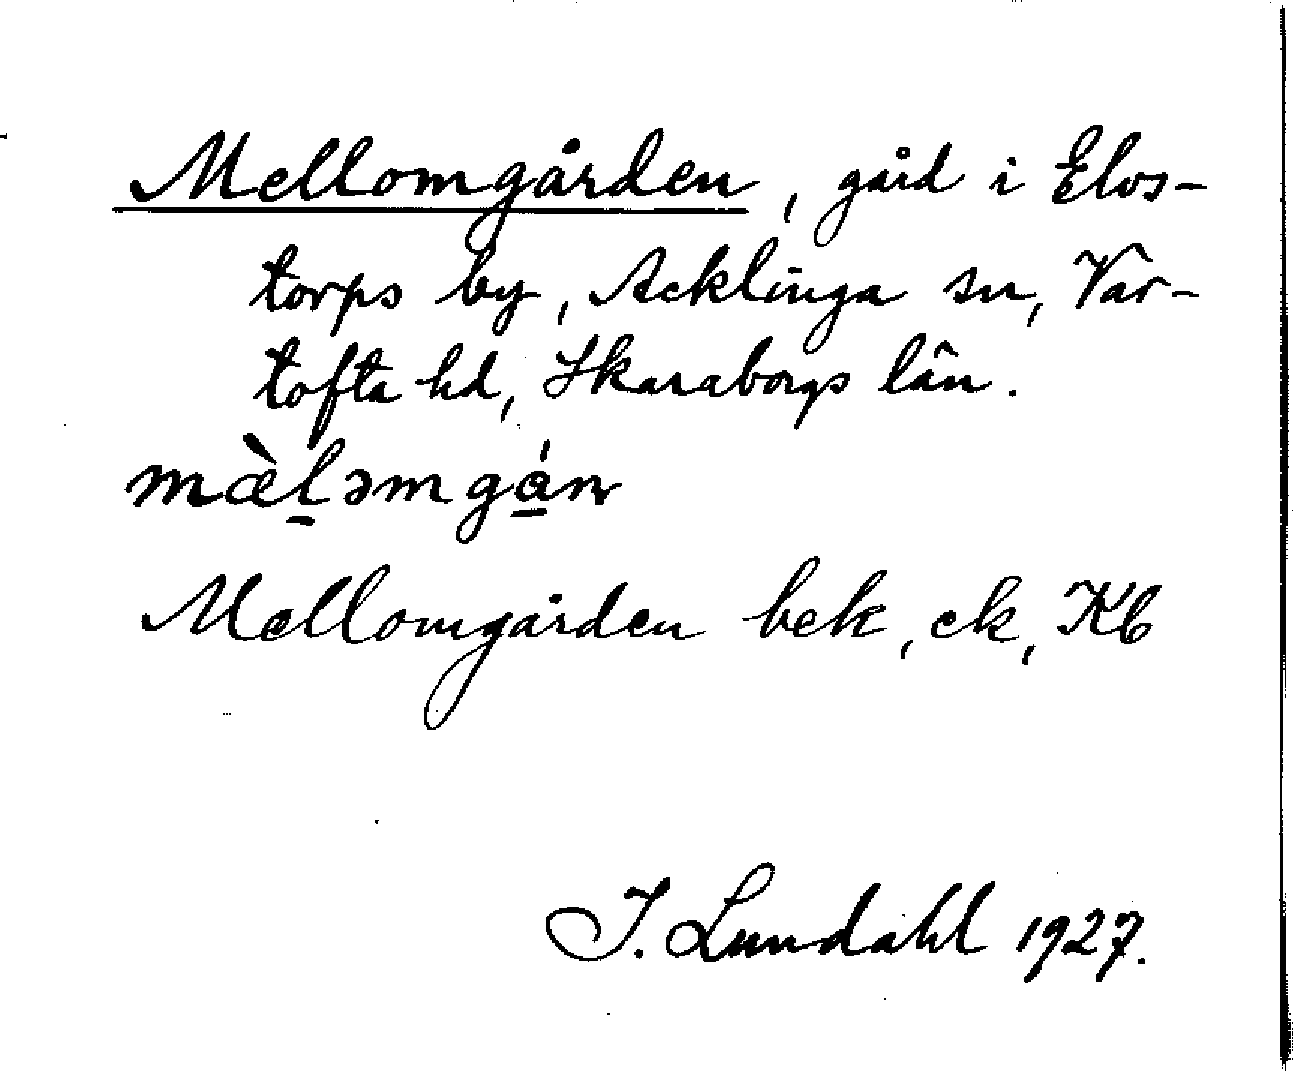 Mellomgården, gård i Elos-
torps by, Acklinga sn, Var-
tofta hd, Skaraborgs län.
mæ̀l̠əmgá̠n
Mellomgården bek, ek, Kb
I. Lundahl 1927.